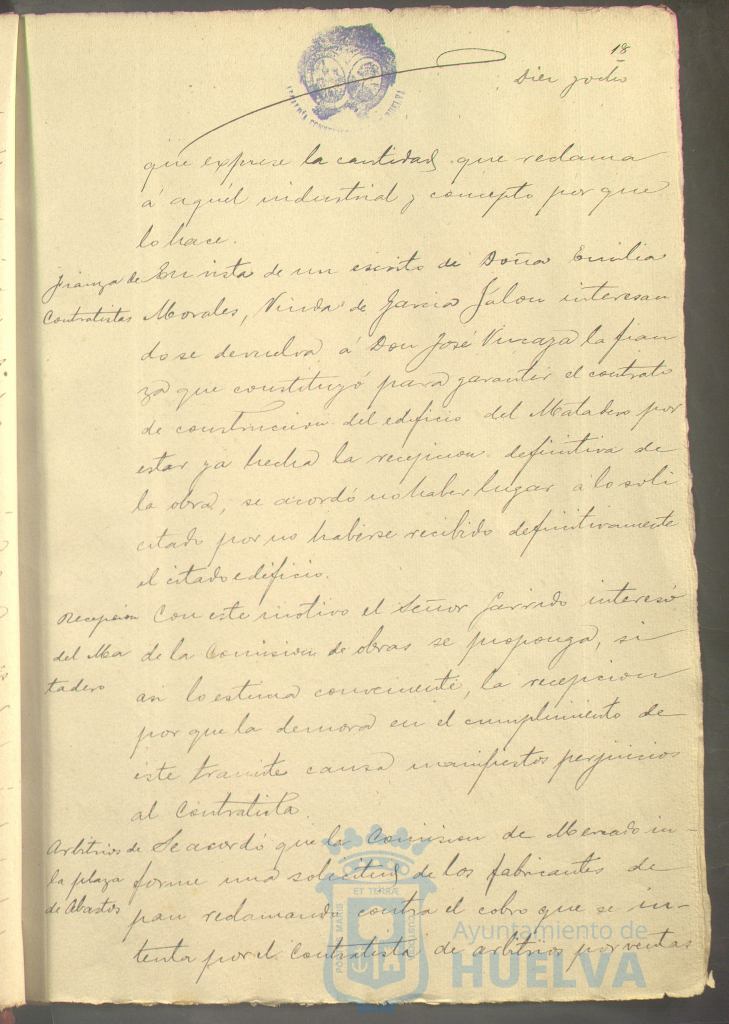 18
Diez y ocho
que exprese la cantidad que reclama
á aquél industrial y concepto por que
lo hace.
Fianza de
Contratistas
En vista de un escrito de Doña Emilia
Morales, Viuda de Garcia Jalon interesan
do se devuelva á Don José Vizcaya la fian
za que constituyó para garantir el contrato
de construccion del edificio del Matadero por
estar ya hecha la recepcion definitiva de
la obra, se acordó no haber lugar á lo soli
citado por no haberse recibido definitivamente
el citado edificio.
Recepcion
del Ma
tadero
Con este motivo el Señor Garrido interesó
de la Comision de obras se proponga, si
asi lo estima conveniente, la recepcion
por que la demora en el cumplimiento de
este tramite causa manifiestos perjuicios
al Contratista.
Arbitrios de
la plaza
de Abastos
Se acordó que la Comision de Mercado in-
forme una solicitud de los fabricantes de
pan reclamando contra el cobro que se in-
tenta por el Contratista de arbitrios por ventas
PORTUS MARIS ET TERRÆ CUSTODIA
Ayuntamiento de
HUELVA